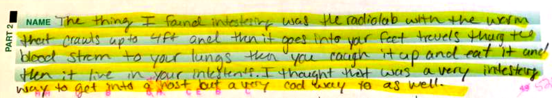 PART 2
NAME The thing I found intestering was the radiolab with the worm
that crawls up to 4ft and then it goes into yar feet travels thurg the
blood strem to your lungs then you caugh it up and eat it and
then it live in your intestents. I thought that was a very intestering
way to get into a host but a very cool way to as well.